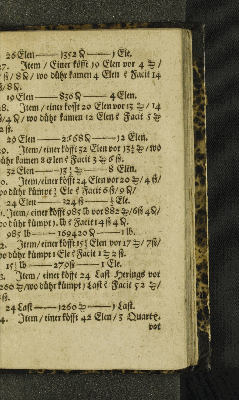 26 Elen — 1352 — 1 Ele.
27. Item / Einer köfft 19 Elen vor 4
ß/ 8 / wo dühr kamen 4 Elen ē Facit 14
ß/ 8
19 Elen — 836 — 4 Elen.
Item / einer köfft 20 Elen vor 13 / 14
ß/4 / wo dühr kamen 12 Elen ē Facit 5
2 ß.
20 Elen — 2668 — 12 Elen.
Item/ einer köfft 32 Elen vor 13½ / wo
dühr kamen 8 Elen ē Facit 3 6 ß.
32 Elen — 13½ — 8 Elen.
Item/ einer köfft 24 Elen vor 20 / 4 ß/
wo dühr kümpt Ele ē Facit 6 ß/ 9
24 Elen — 324 ß — Ele.
Item/ einer köfft 985 lb vor 882 / 6 ß 4
wo dühr kümpt 1. lb ē Facit 14 ß 4
985 lb — 169420 — 1 lb.
Item/ einer köfft 15½ Elen vor 17 / 7 ß/
wo dühr kümpt 1 Ele ē Facit 1 2 ß.
15½ — 279 ß — 1 Ele.
Item / einer köfft 24 Last Herings vor
1260 / wo dühr kümpt 1 Last ē Facit 52
ß.
24 Last — 1260 — 1 Last.
Item / einer köfft 42 Elen / 3 Quartr.
vor